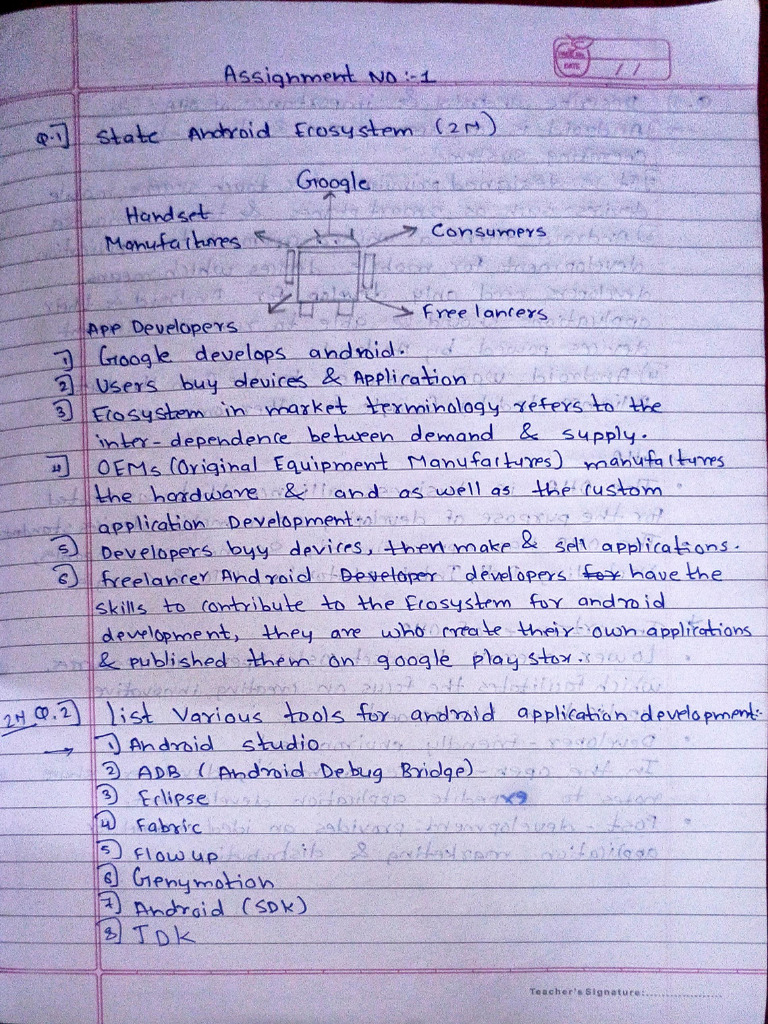 Assignment NO :- 1
DATE
/ /
Q.1] State Android Ecosystem (2M)
Google
Handset
Manufactures
Consumers
App Developers
Freelancers
1) Google develops android.
2) Users buy devices & Application
3) Ecosystem in market terminology refers to the
inter-dependence between demand & supply.
4) OEMs (Original Equipment Manufactures) manufactures
the hardware & and as well as the custom
application Development.
5) Developers byy devices, then make & sell applications.
6) freelancer Android Developer developers for have the
skills to contribute to the Ecosystem for android
development, they are who create their own applications
& published them on google play stor.
2M Q.2] List Various tools for android application development:-
→ 1) Android studio
2) ADB (Android Debug Bridge)
3) Eclipse
4) Fabric
5) Flow up
6) Genymotion
7) Android (SDK)
8) JDK
Teacher's Signature:................